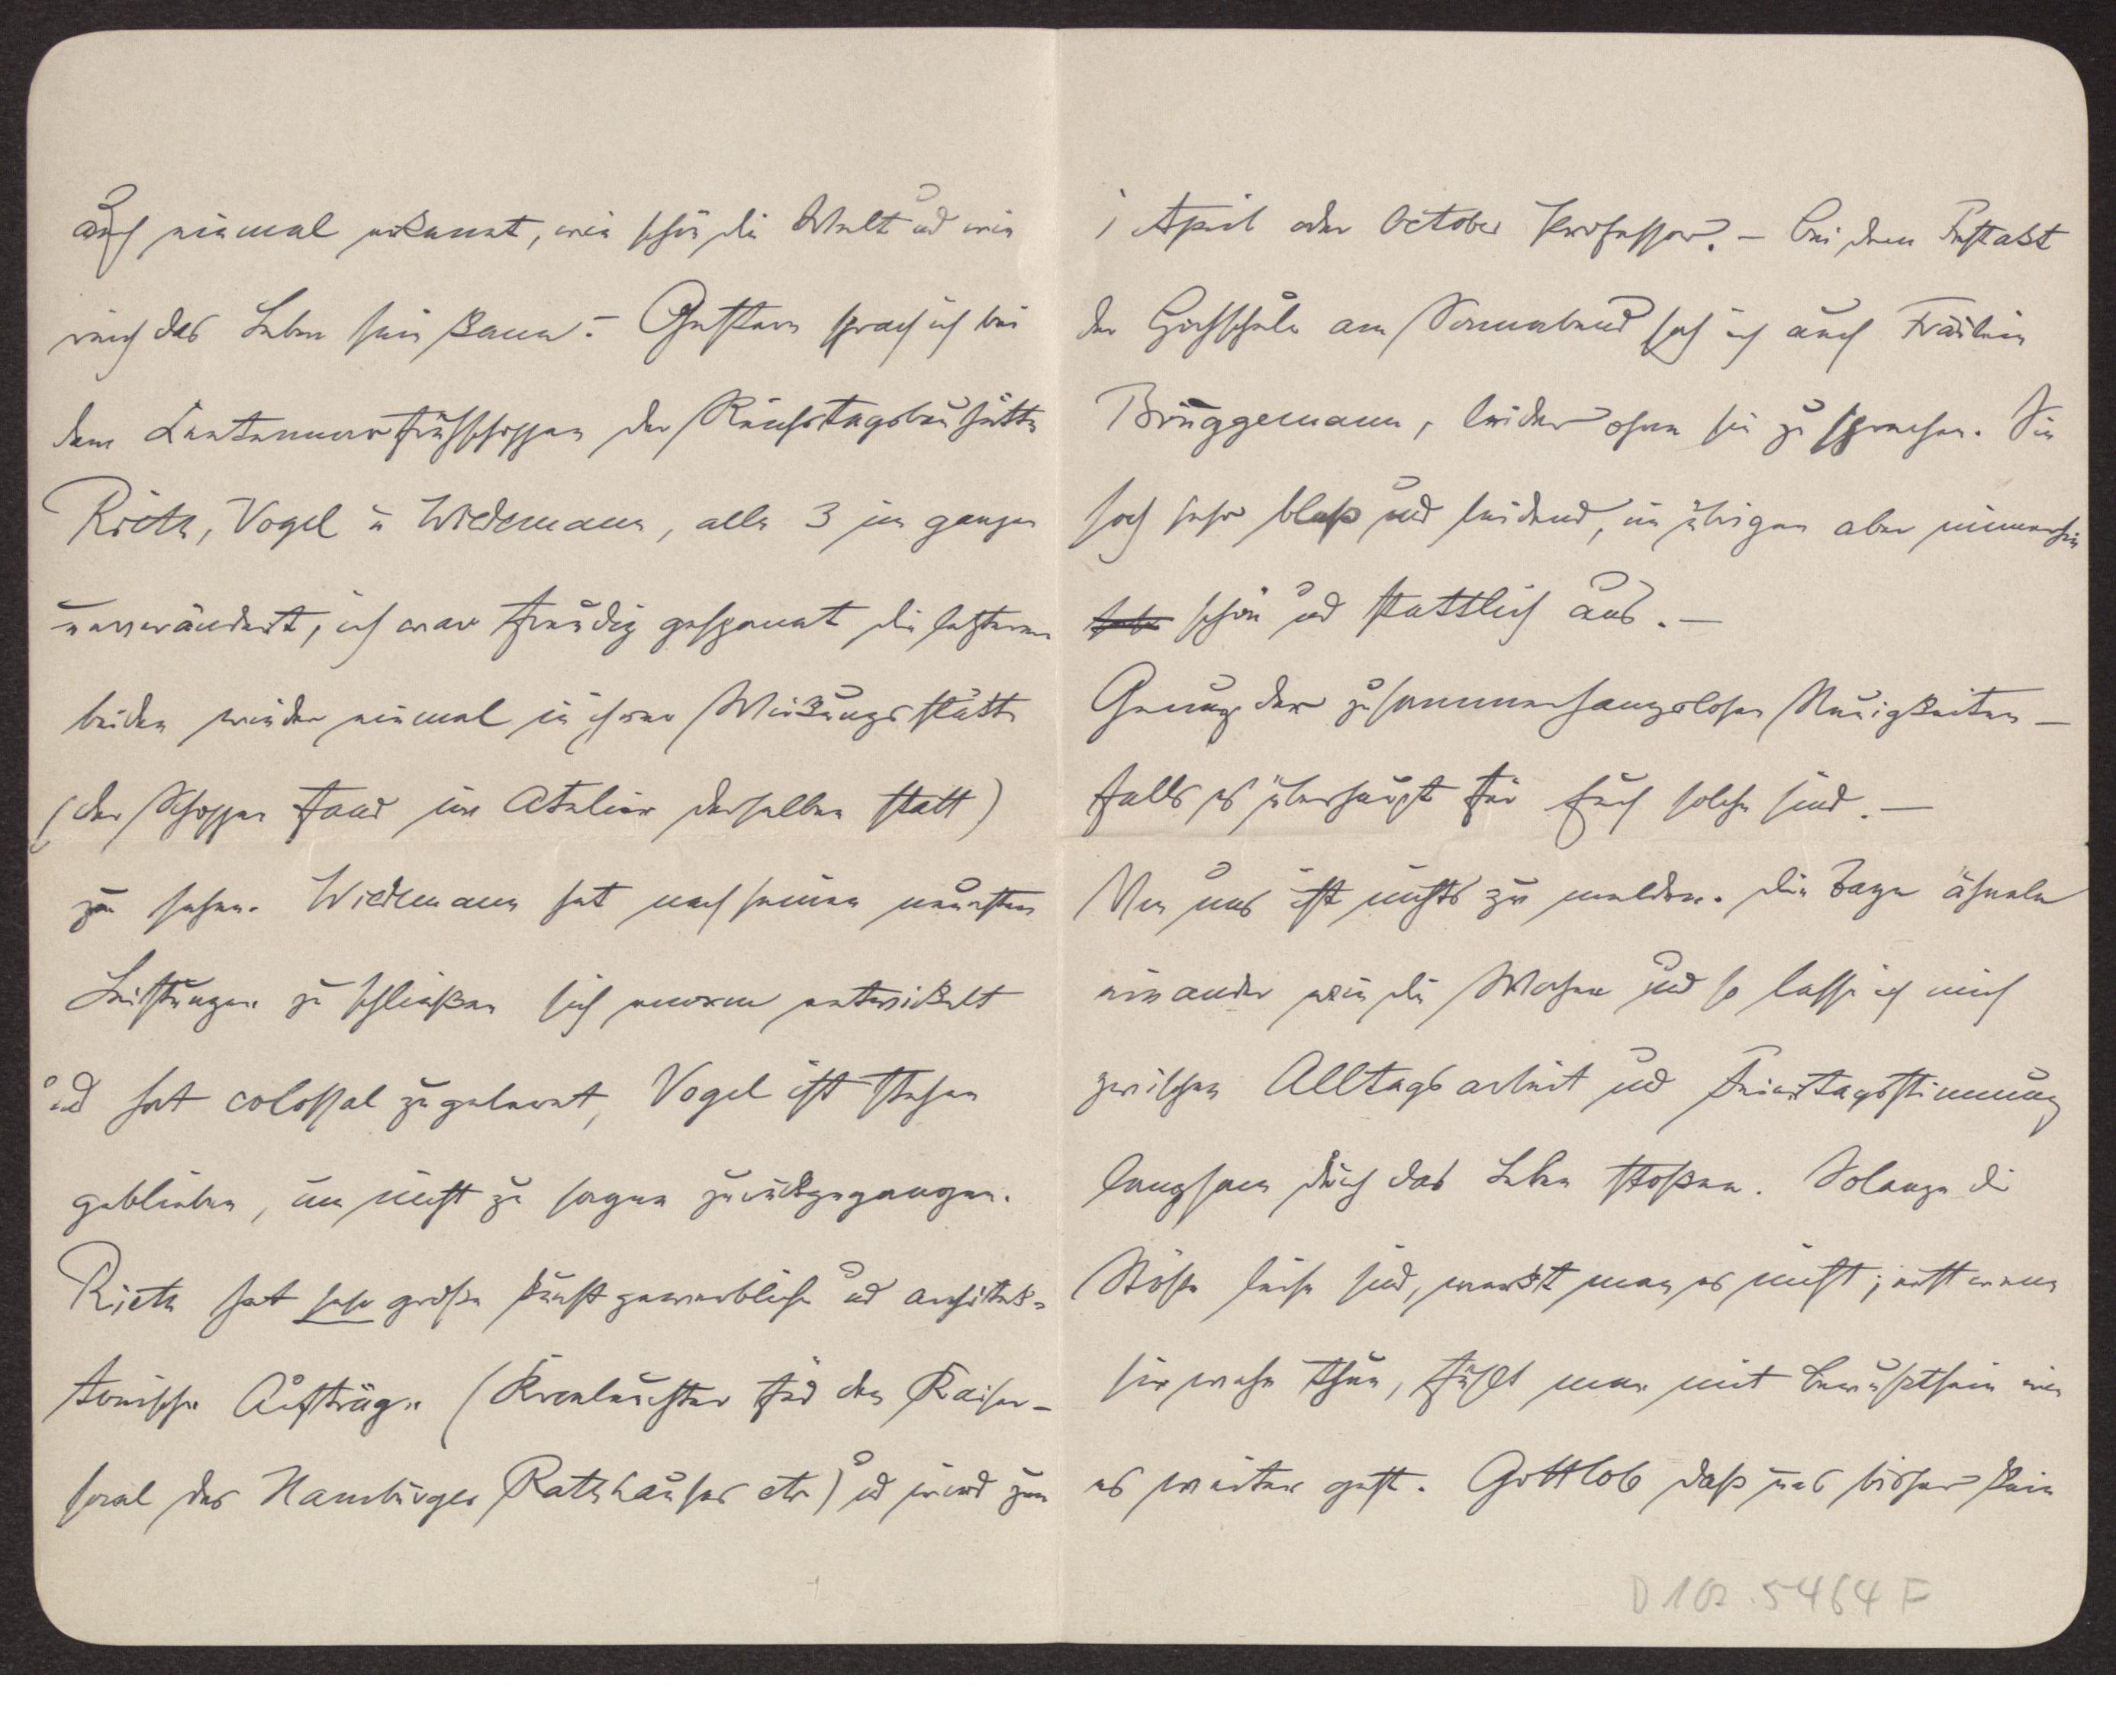 auf einmal erkannt, wie schön die Welt und wie
reich das Leben sein kann. – Gestern sprach ich bei
dem Frühschoppen der Reichstagsbauhütte
Rieth, Vogel u Widemann, alle 3 im ganzen
unverändert, ich war freudig gespannt die letzteren
beiden wieder einmal in ihrer Wirkungsstätte
(der Schoppen fand im Atelier derselben statt)
zu sehen. Widemann hat nach seinen neuesten
Leistungen zu schließen sich enorm entwickelt
und hat colossal zugelernt, Vogel ist stehen
geblieben, um nicht zu sagen zurückgegangen.
Rieth hat sehr große kunstgewerbliche und architek-
tonische Aufträge (Kronleuchter für den Kaiser-
saal des Hamburger Rathhauses etc) und wird zum
1 April oder October Professor. – Bei dem Festakt
der Hochschule am Sonnabend sah ich auch Fräulein
Brüggemann, leider ohne sie zu sprechen. Sie
sah sehr blaß und leidend, im übrigen aber immerhin
schön und stattlich aus. –
Genug der zusammenhangslosen Neuigkeiten –
falls es überhaupt für Euch solche sind. –
Von uns ist nichts zu melden. Die Tage ähneln
einander wie die Wochen und so lasse ich mich
zwischen Alltagsarbeit und Feiertagsstimmung
langsam durch das Leben stoßen. Solange die
Stöße leise sind, merkt man es nicht; erst wenn
sie wehe thun, fühlt man mit Bewußtsein wie
es weiter geht. Gottlob daß uns bisher kein
D 102.5464 F